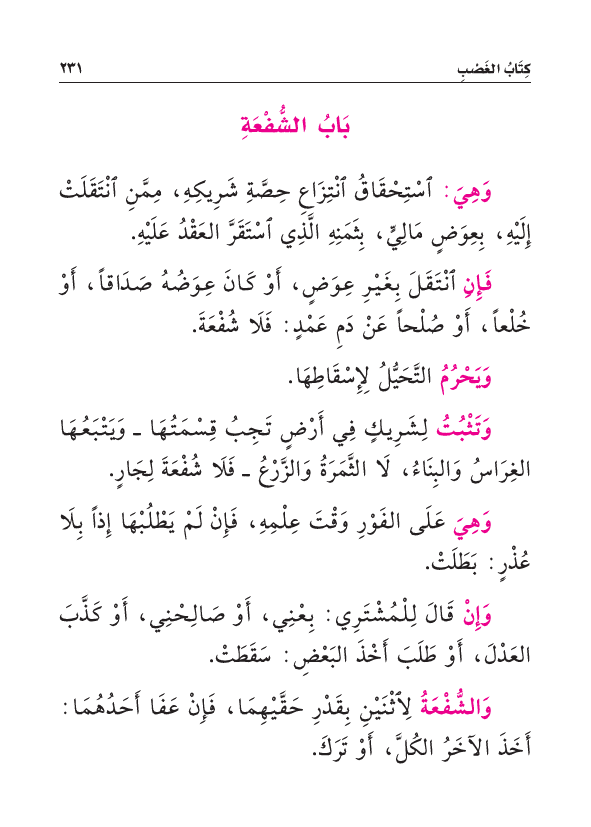 كِتَابُ الغَصْبِ ٢٣١
بَابُ الشُّفْعَةِ
وَهِيَ: ٱسْتِحْقَاقُ ٱنْتِزَاعِ حِصَّةِ شَرِيكِهِ، مِمَّنِ ٱنْتَقَلَتْ
إِلَيْهِ، بِعِوَضٍ مَالِيٍّ، بِثَمَنِهِ الَّذِي ٱسْتَقَرَّ العَقْدُ عَلَيْهِ.
فَإِنِ ٱنْتَقَلَ بِغَيْرِ عِوَضٍ، أَوْ كَانَ عِوَضُهُ صَدَاقاً، أَوْ
خُلْعاً، أَوْ صُلْحاً عَنْ دَمِ عَمْدٍ: فَلَا شُفْعَةَ.
وَيَحْرُمُ التَّحَيُّلُ لِإِسْقَاطِهَا.
وَتَثْبُتُ لِشَرِيكٍ فِي أَرْضٍ تَجِبُ قِسْمَتُهَا ـ وَيَتْبَعُهَا
الغِرَاسُ وَالبِنَاءُ، لَا الثَّمَرَةُ وَالزَّرْعُ ـ فَلَا شُفْعَةَ لِجَارٍ.
وَهِيَ عَلَى الفَوْرِ وَقْتَ عِلْمِهِ، فَإِنْ لَمْ يَطْلُبْهَا إِذاً بِلَا
عُذْرٍ: بَطَلَتْ.
وَإِنْ قَالَ لِلْمُشْتَرِي: بِعْنِي، أَوْ صَالِحْنِي، أَوْ كَذَّبَ
العَدْلَ، أَوْ طَلَبَ أَخْذَ البَعْضِ: سَقَطَتْ.
وَالشُّفْعَةُ لِٱثْنَيْنِ بِقَدْرِ حَقَّيْهِمَا، فَإِنْ عَفَا أَحَدُهُمَا:
أَخَذَ الآخَرُ الكُلَّ، أَوْ تَرَكَ.